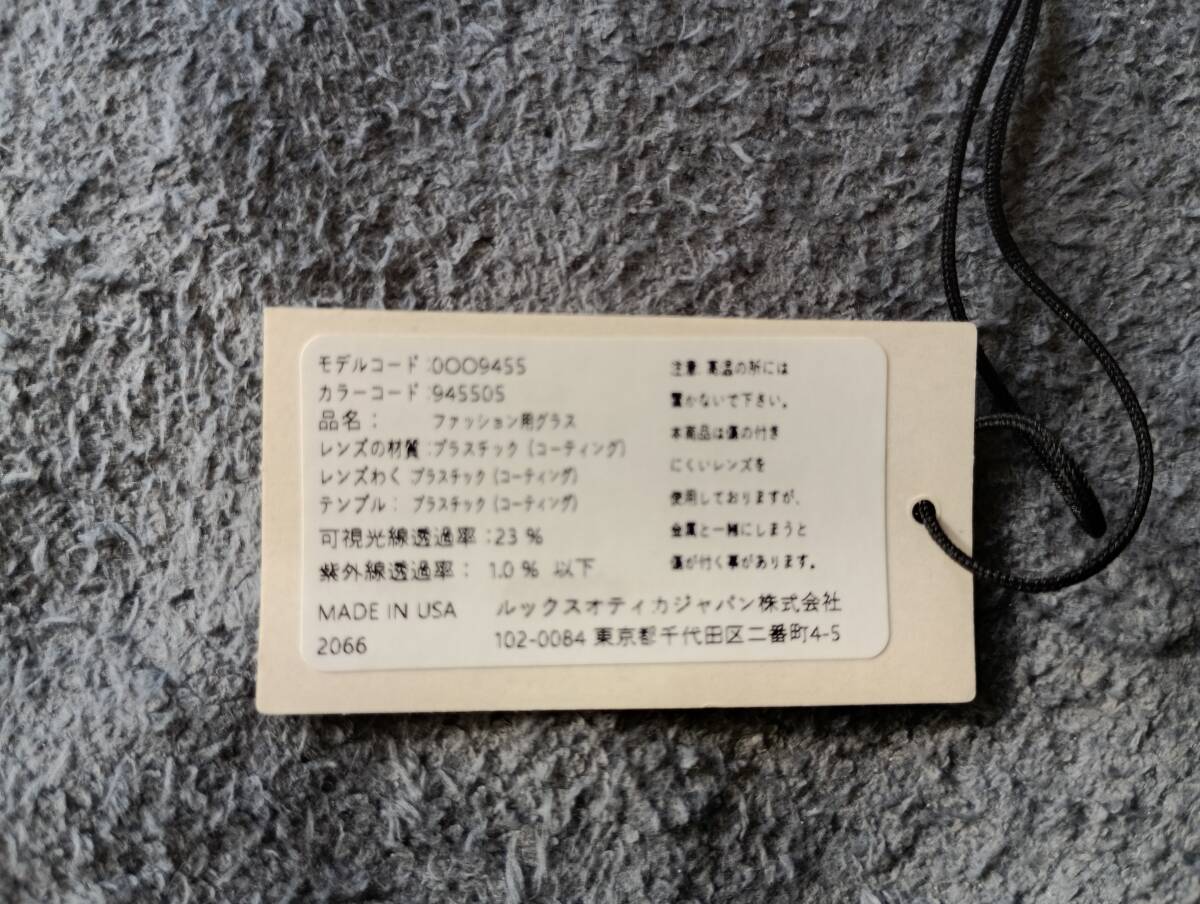 モデルコード :0OO9455
カラーコード :945505
品名： ファッション用グラス
レンズの材質 :プラスチック (コーティング)
レンズわく プラスチック (コーティング)
テンプル： プラスチック (コーティング)
可視光線透過率 :23 %
紫外線透過率： 1.0 % 以下
MADE IN USA
2066
注意 高温の所には
置かないで下さい。
本商品は傷の付き
にくいレンズを
使用しておりますが、
金属と一緒にしまうと
傷が付く事があります。
ルックスオティカジャパン株式会社
102-0084 東京都千代田区二番町4-5